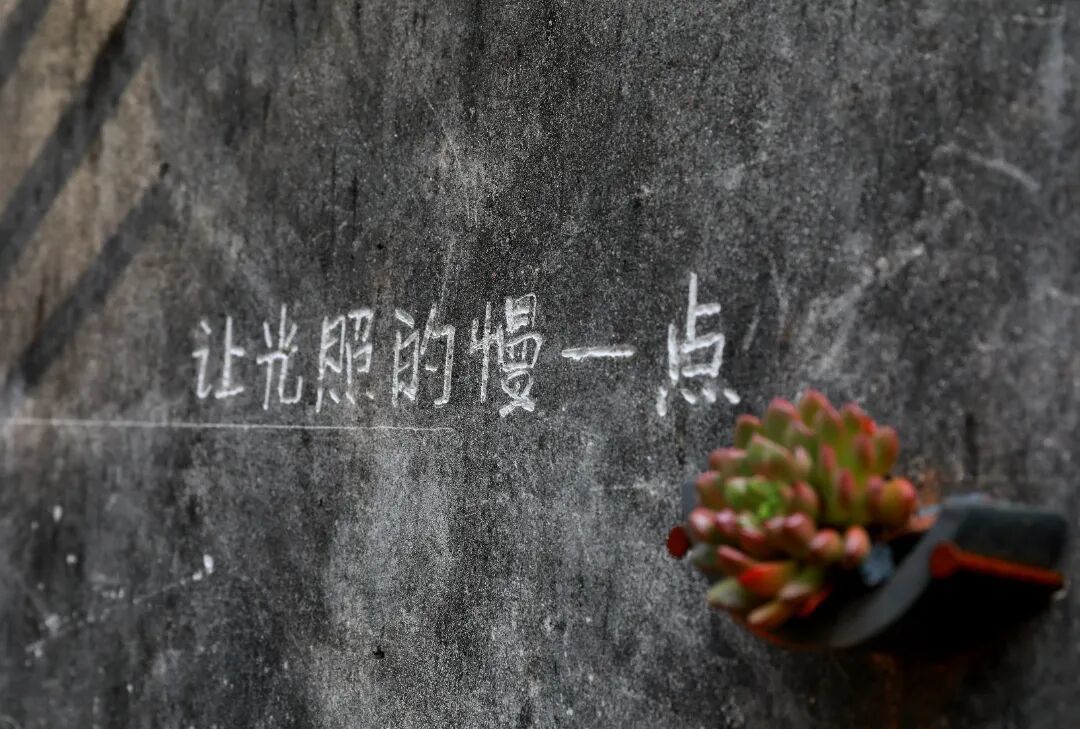 让光照的慢一点